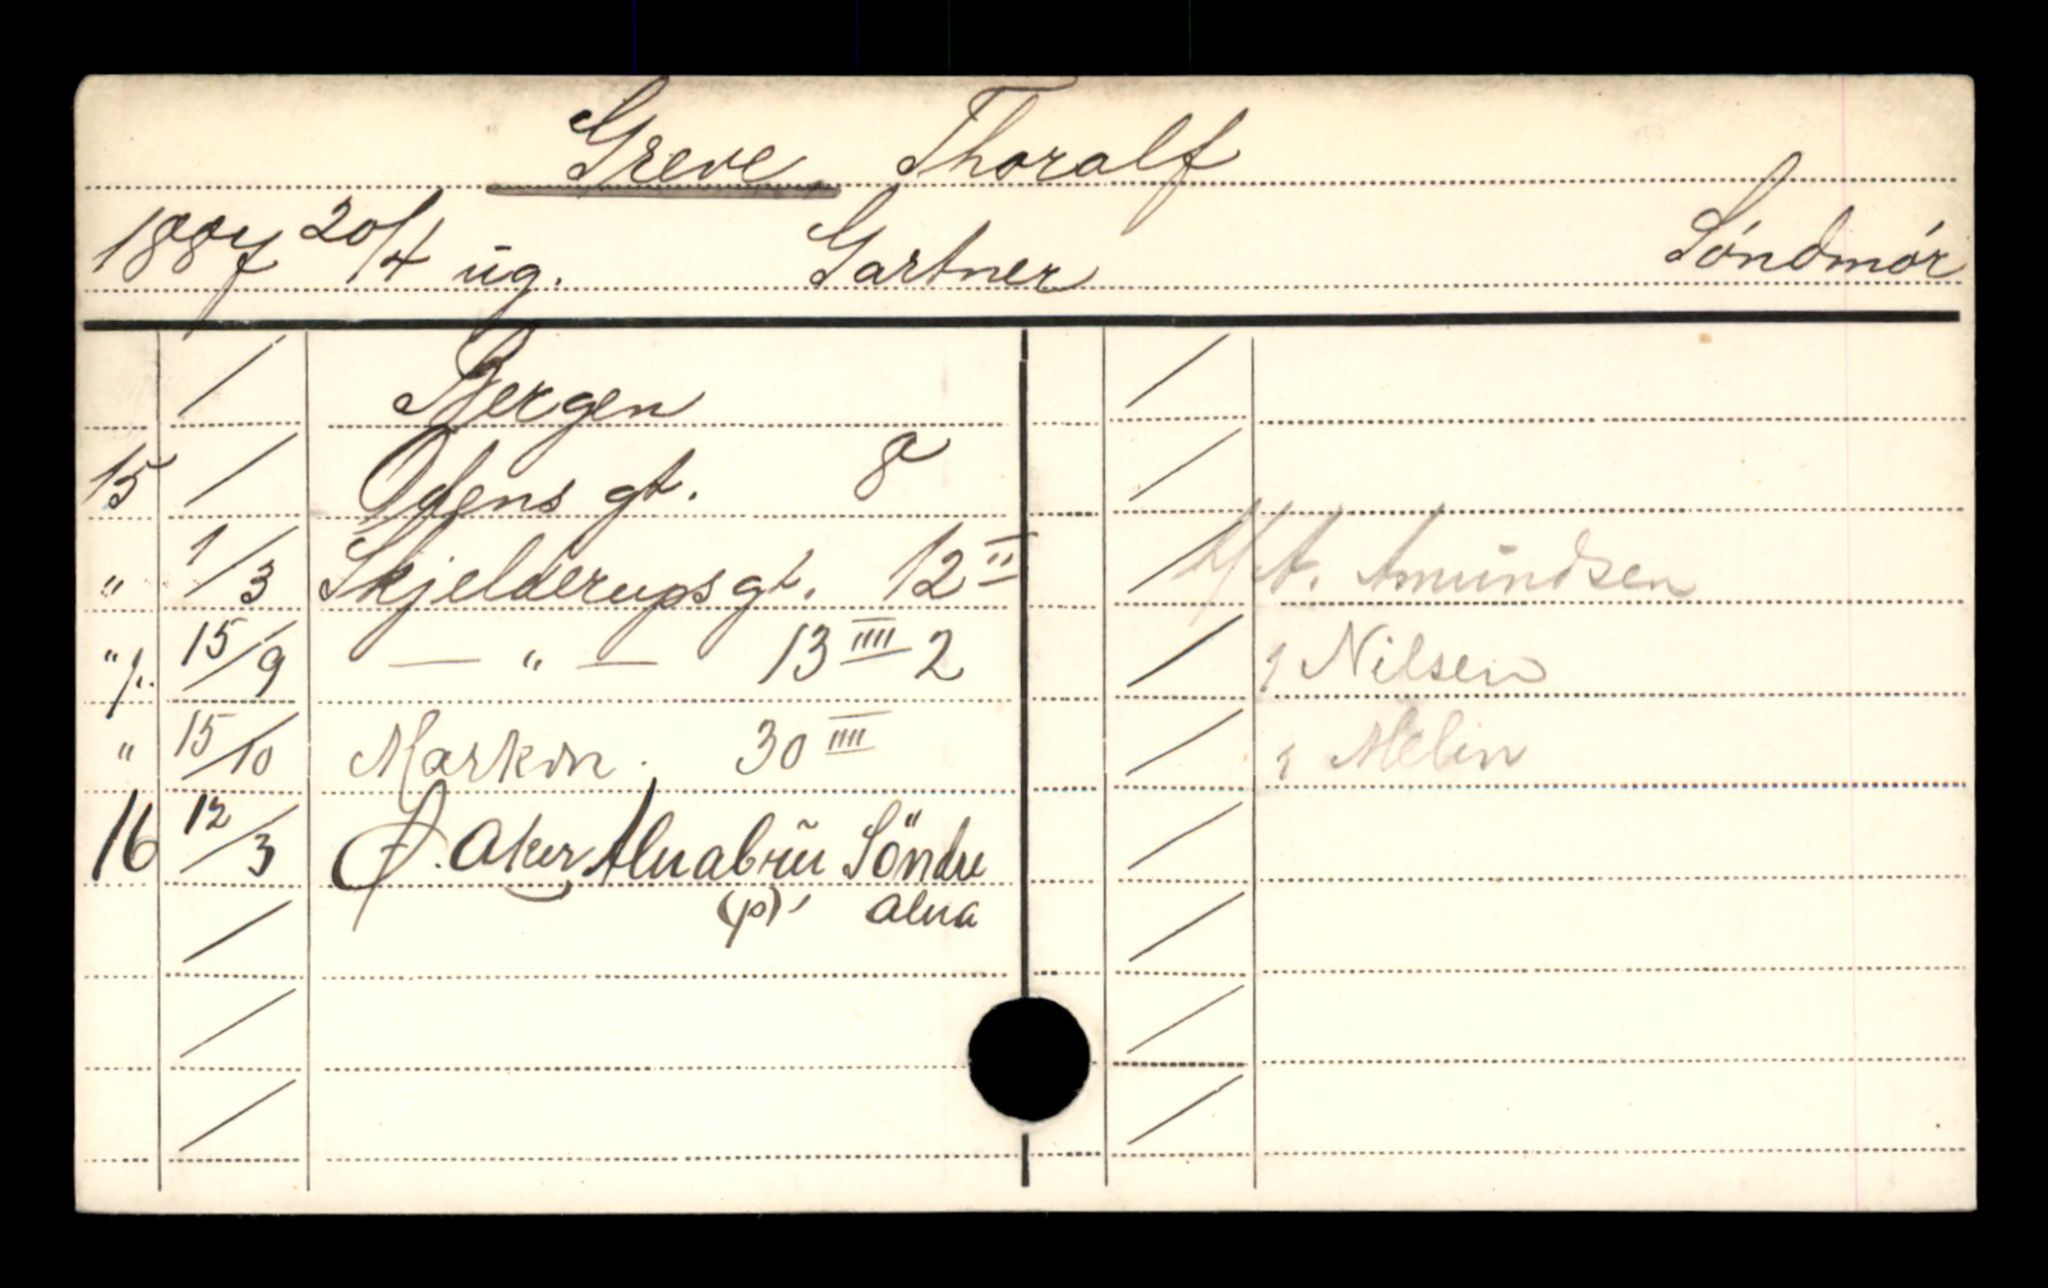 Greve Thoralf
1887 20/4 ug. Gartner Söndmör
Bergen
15 Odens gt. 8
" 1/3 Skjelderups gt. 12 II
" 15/9 — " — 13 IIII 2
" 15/10 Markvn. 30 IIII
16 12/3 Ø. Aker Alnabru Söndre
(p) Alna
A. Amundsen
Nilsen
Melin